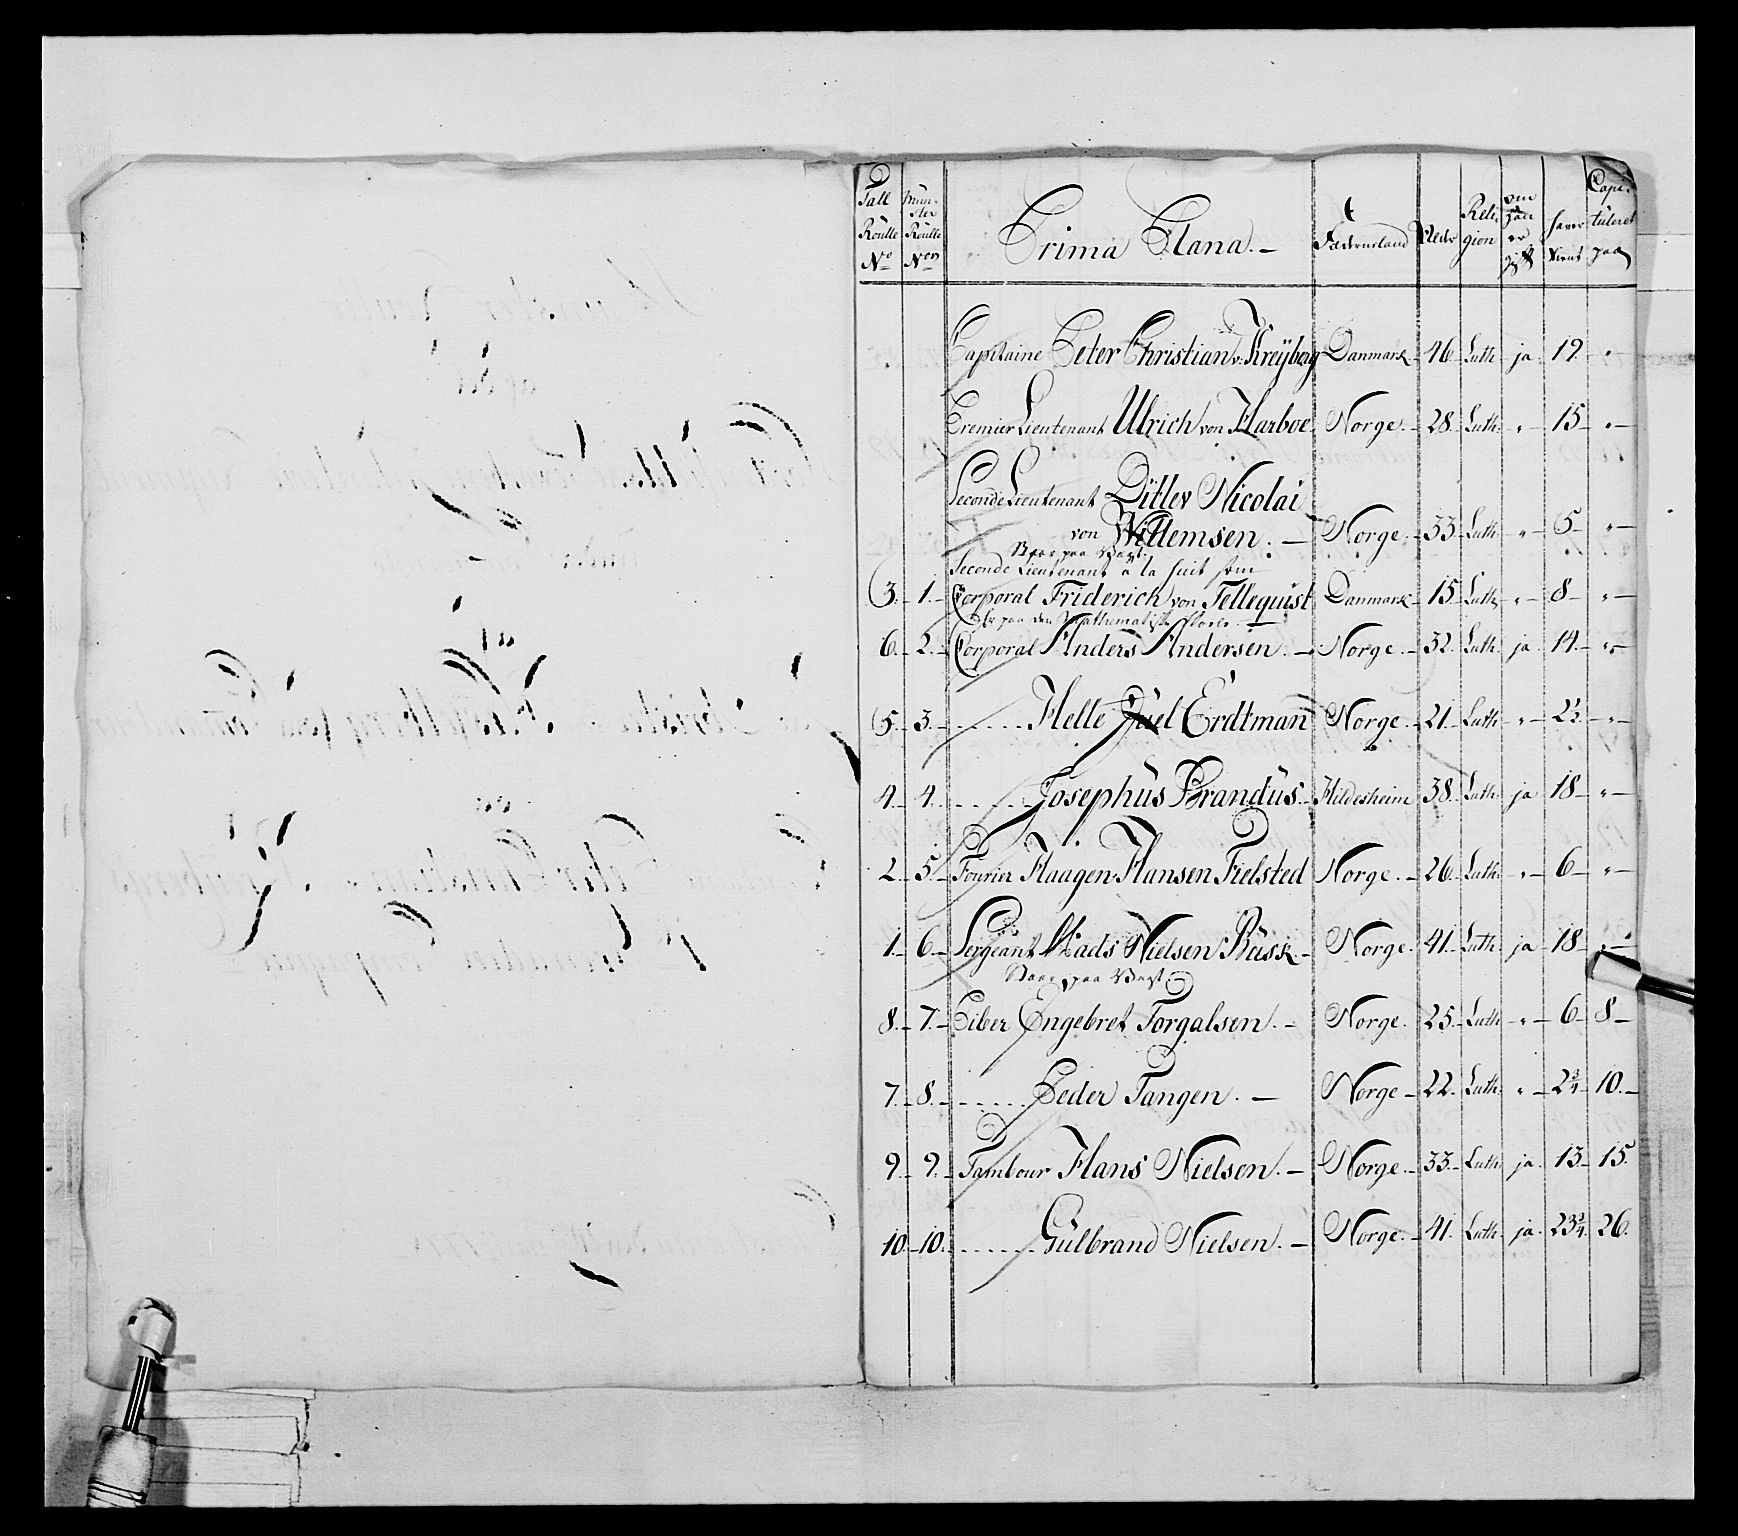 Tall Roulle No | Mün-ster Roulle Nor | Prima Plana. | Fæderneland | Alder | Reli-gion | om han er gift | haver tient | Capi-tuleret paa
Capitaine Peter Christian v. Kreÿberg | Danmark | 46 | Luth | ja | 19 | "
Premier Lieutenant Ulrich von Harboe | Norge | 28 | Luth | " | 15 | "
Seconde Lieutenant Ditlev Nicolai
von Willemsen. | Norge | 33 | Luth | " | 5 | "
Staar paa Vagt.
Seconde Lieutenant à la suit som
3. | 1. | Corporal Friderich von Tellequist | Danmark | 15 | Luth | " | 8 | "
Er paa den Mathematiske Skole
6. | 2. | Corporal Anders Andersen. | Norge | 32 | Luth | ja | 14 | "
5. | 3. | Helte Juel Erdtman | Norge | 21 | Luth | " | 2½ | "
4. | 4. | Josephüs Brandüs | Hildesheim | 38 | Luth | ja | 18 | "
2. | 5. | Fourier Haagen Hansen Fielsted | Norge | 26 | Luth | " | 6 | "
1. | 6. | Sergeant Mads Nielsen Büsk | Norge | 41 | Luth | ja | 18 | "
Staar paa Vagt
8. | 7. | Piber Engebret Torgalsen. | Norge | 25 | Luth | " | 6 | 8
7. | 8. | Peder Tangen. | Norge | 22 | Luth | " | 2¾ | 10
9. | 9. | Tambour Hans Nielsen. | Norge | 33 | Luth | ja | 13 | 15
10. | 10. | Gülbrand Nielsen. | Norge | 41 | Luth | ja | 23¾ | 26